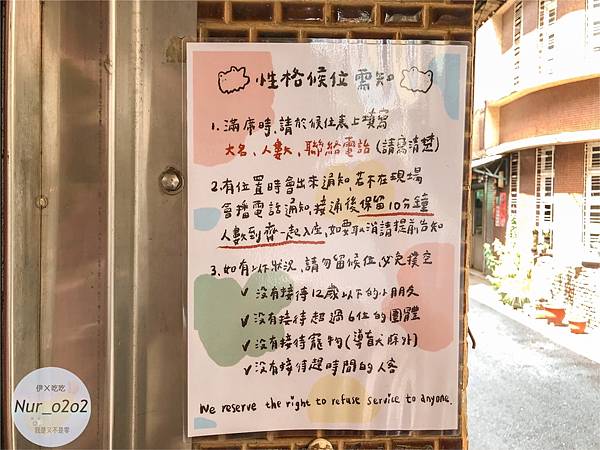 性格候位需知
1. 滿席時，請於候位表上填寫
大名、人數、聯絡電話（請寫清楚）
2. 有位置時會出來通知，若不在現場
會播電話通知，接通後保留10分鐘
人數到齊一起入座，如要取消請提前告知
3. 如有以下狀況，請勿留候位以免撲空
✓ 沒有接待12歲以下的小朋友
✓ 沒有接待超過6位的團體
✓ 沒有接待寵物（導盲犬除外）
✓ 沒有接待趕時間的人客
We reserve the right to refuse service to anyone.
伊×吃吃
Nur_o2o2
我是又不是零